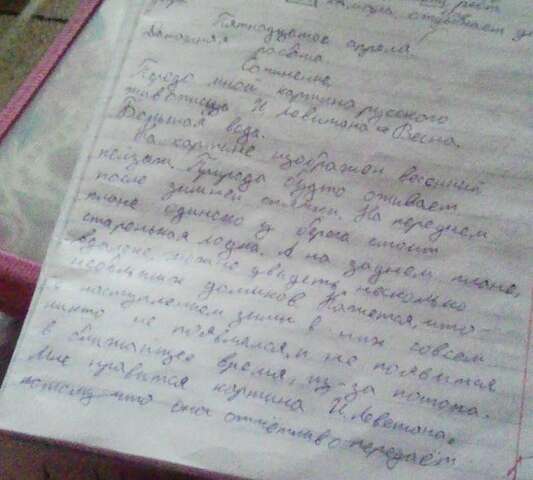 Пятнадцатое апреля.
Домашняя работа
Сочинение
Передо мной картина русского
живописца И. Левитана "Весна.
Большая вода.
На картине изображён весенний
пейзаж. Природа будто оживает
после зимней спячки. На переднем
плане одиноко у берега стоит
старенькая лодка. А на заднем плане,
вдалеке, можно увидеть несколько
небольших домиков. Кажется, что
с наступлением зимы в них совсем
никто не появлялся, и не появится
в ближайшее время, из-за потопа.
Мне нравится картина И. Левитана,
потому что она отчётливо передаёт